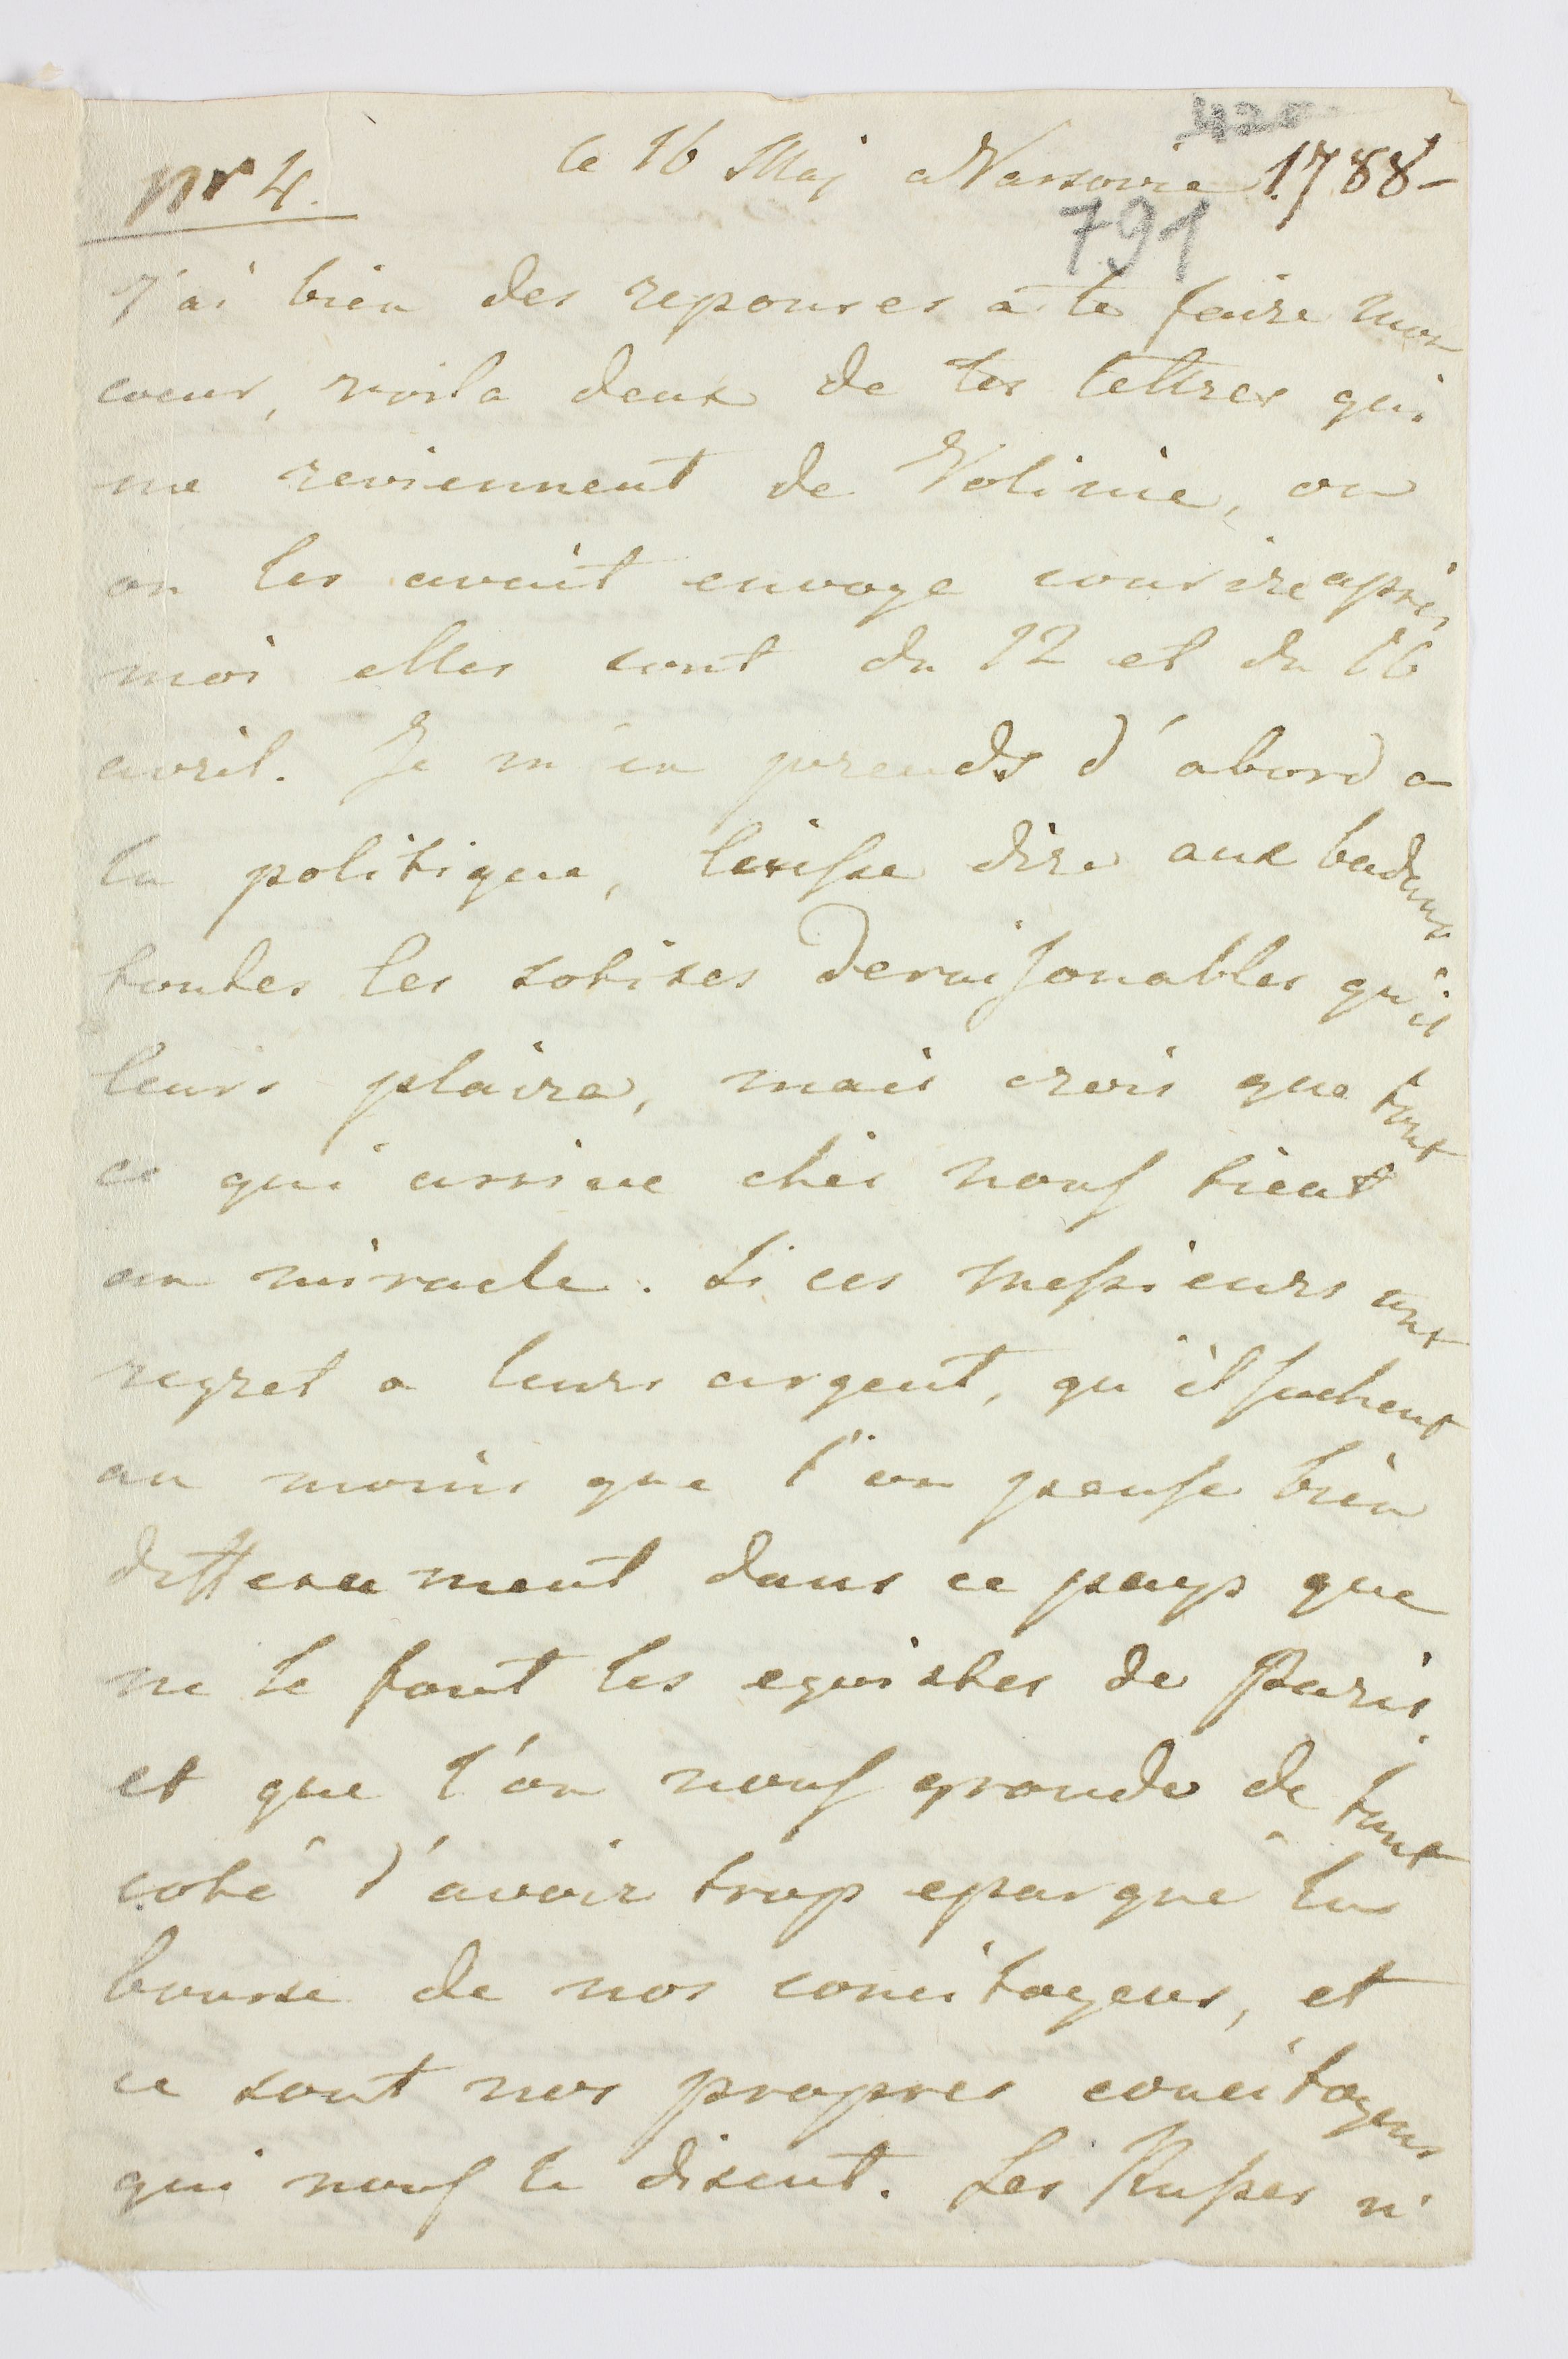 420
nr 4. le 16 Maj a Varsovie 1788-
791
J'ai bien des reponses a te faire mon
coeur, voila deux de tes lettres qui
me reviennent de Volinie, ou
on les avait envoye courire après
moi elles sont du 12 et du 16
avril. Je m'en prends d'abord a
la politique, laisse dire aux badaux
toutes les sotises deraisonables qu'il
leurs plaira, mais crois que tout
ce qui arrive ches nous tient
au miracle. Si ces messieurs ont
regret a leurs argent, qu'il sachent
au moins que l'on pense bien
differament dans ce pays que
ne le font les egoistes de Paris,
et que l'on nous gronde de tout
coté d'avoir trop epargné la
bourse de nos concitoyens, et
ce sont nos propres concitoyens
qui nous le disent. Les Russes n'